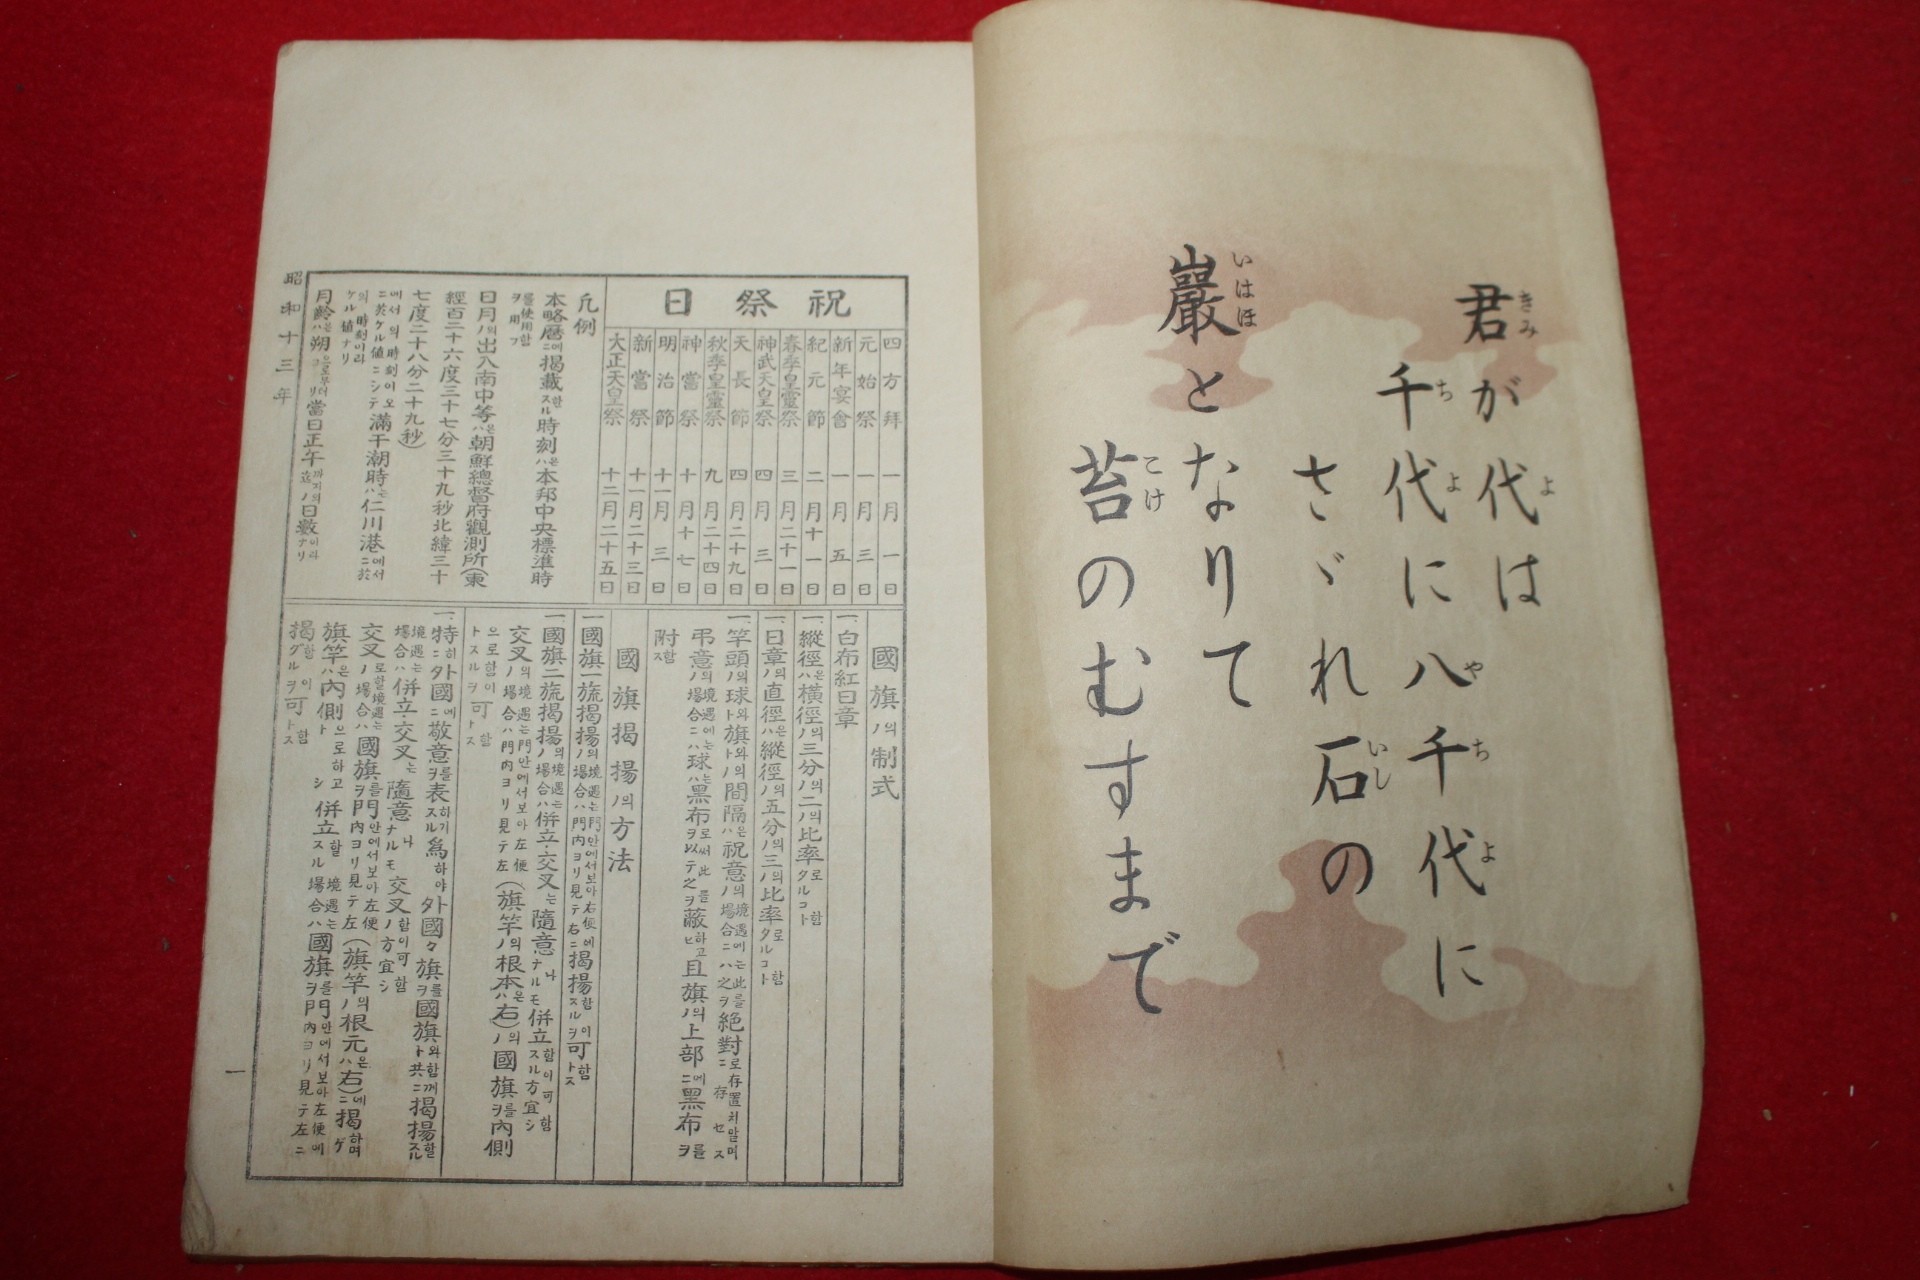 君が代は
千代に八千代に
さゞれ石の
巖となりて
苔のむすまで
きみ
よ
ち
よ
や
ち
よ
いし
いはほ
こけ
祝祭日
四方拜 一月一日
元始祭 一月三日
新年宴會 一月五日
紀元節 二月十一日
春季皇靈祭 三月二十一日
神武天皇祭 四月三日
天長節 四月二十九日
秋季皇靈祭 九月二十四日
神嘗祭 十月十七日
明治節 十一月三日
新嘗祭 十一月二十三日
大正天皇祭 十二月二十五日
凡例
本略曆ニ에揭載スル할時刻ハ은本邦中央標準時
ヲ用フ를使用함
日月ノ의出入南中等ハ은朝鮮總督府觀測所(東
經百二十六度三十七分三十九秒北緯三十
七度二十八分二十九秒)
ニ於ケル値ニシテ에서의時刻이오滿干潮時ハ는仁川港ニ於에서
ケル値ナリ의時刻이라
月齡ハ은朔ヨリ으로부터當日正午迄ノ까지의日數ナリ이라
國旗ノ의制式
一、白布紅日章
一、縱徑ハ은橫徑ノ의三分ノ의二ノ의比率タルコト로함
一、日章ノ의直徑ハ은縱徑ノ의五分ノ의三ノ의比率タルコト로함
一、竿頭ノ의球ト와旗トノ와의間隔ハ은祝意ノ場合ニハ之ヲ의境遇에는此를絶對ニ存セス로存置치말며
弔意ノ場合ニハ의境遇에는球ハ는黑布ヲ以テ之ヲ로써此를蔽ヒ하고且旗ノ의上部ニ에黑布ヲ를
附ス함
國旗揭揚ノ의方法
一、國旗一旒揭揚ノ場合ハ門內ヨリ見テ右ニ의境遇는門안에서보아右便에揭揚スルヲ함이可トス함
一、國旗二旒揭揚ノ場合ハ의境遇는併立·交叉는隨意ナルモ나併立スル方宜シ함이可함
交叉ノ場合ハ門內ヨリ見テ左의境遇는門안에서보아左便(旗竿ノ의根本ハ은右)ノ의國旗ヲ를內側
トスルヲ으로함이可トス함
一、特ニ히外國ニ에敬意ヲ를表スル하기爲하야外國々旗ヲ를國旗ト共ニ와함께揭揚スル할
場合ハ境遇는併立·交叉는隨意ナルモ나交叉ノ方宜シ함이可함
交叉ノ場合ハ로할境遇는國旗ヲ門內ヨリ見テ左를門안에서보아左便(旗竿ノ의根元ハ은右)ニ에揭ゲ하며
旗竿ハ은內側トシ으로하고併立スル場合ハ할境遇는國旗ヲ門內ヨリ見テ左ニ를門안에서보아左便에
揭グルヲ함이可トス함
昭和十三年
一